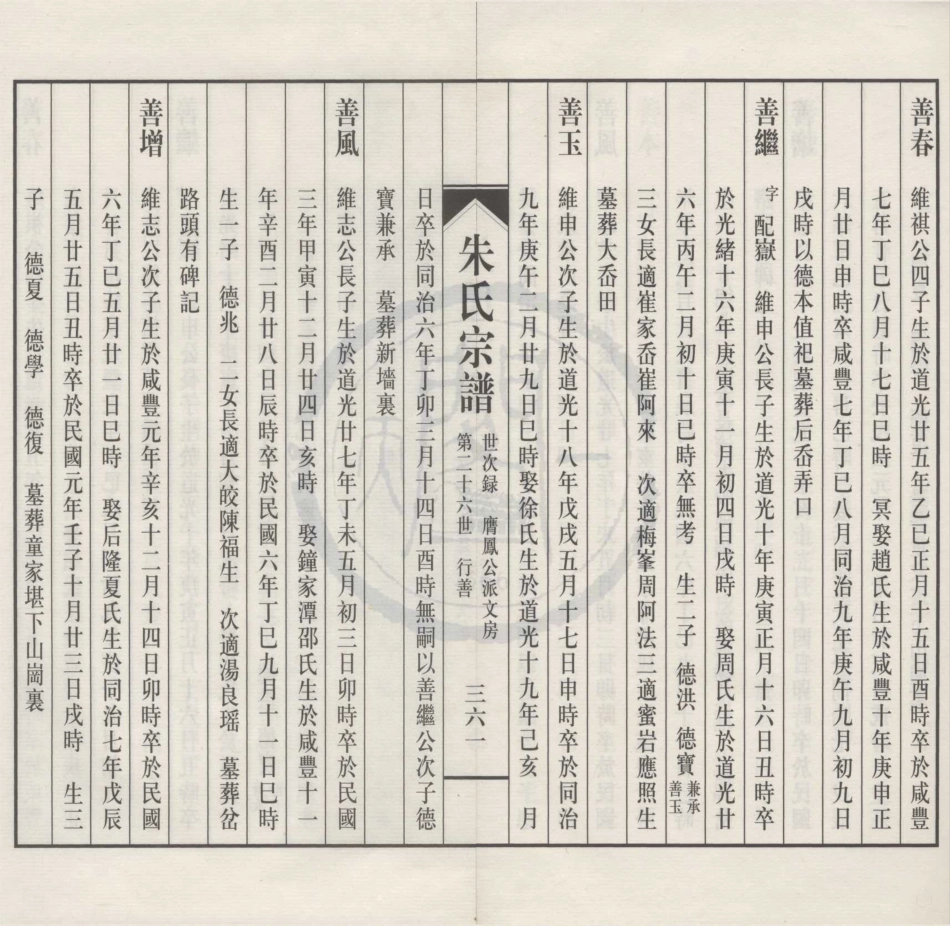 善春 維祺公四子生於道光廿五年乙巳正月十五日酉時卒於咸豐
七年丁巳八月十七日巳時 冥娶趙氏生於咸豐 年庚申正
月廿日申時卒咸豐七年丁巳八月同治九年庚午九月初九日
戌時以德本值祀墓葬后岙弄口
善繼 字配嶽 維申公長子生於道光十年庚寅正月十六日丑時卒
於光緒十六年庚寅十一月初四日戌時 娶周氏生於道光廿
六年丙午五月初十日巳時卒無考 生二子 德洪 德寶 兼承善玉
三女長適崔家岙崔阿來 次適梅峯周阿法三適蜜岩應照生
墓葬大岙田
善玉 維申公次子生於道光十八年戊戌五月十七日申時卒於同治
九年庚午三月廿九日巳時娶徐氏生於道光十九年己亥 月
朱氏宗譜 世次録 膺鳳公派文房 第二十六世 行善 三六一
日卒於同治六年丁卯三月十四日酉時無嗣以善繼公次子德
寶兼承 墓葬新墻裏
善風 維志公長子生於道光廿七年丁未五月初三日卯時卒於民國
三年甲寅十二月廿四日亥時 娶鐘家潭邵氏生於咸豐十一
年辛酉二月廿八日辰時卒於民國六年丁巳九月十一日巳時
生一子 德兆 二女長適大皎陳福生 次適湯良瑶 墓葬岔
路頭有碑記
善增 維志公次子生於咸豐元年辛亥十二月十四日卯時卒於民國
六年丁巳五月廿一日巳時 娶后隆夏氏生於同治七年戊辰
五月廿五日丑時卒於民國元年壬子十一月廿三日戌時 生三
子 德夏 德學 德復 墓葬童家堪下山崗裏